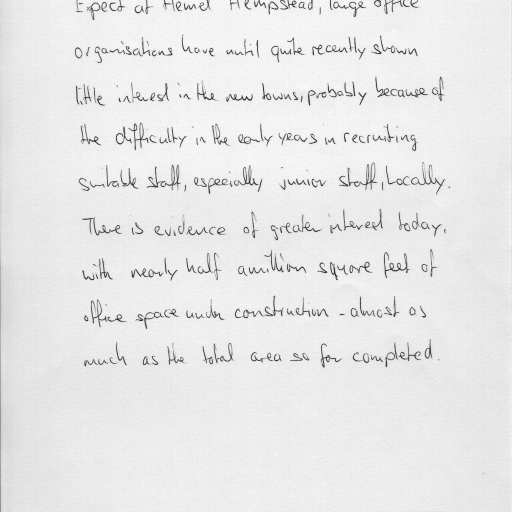 Expect at Hemel Hempstead, large office
organisations have until quite recently shown
little interest in the new towns, probably because of
the difficulty in the early years in recruiting
suitable staff, especially junior staff, locally.
There is evidence of greater interest today,
with nearly half a million square feet of
office space under construction - almost as
much as the total area so far completed.